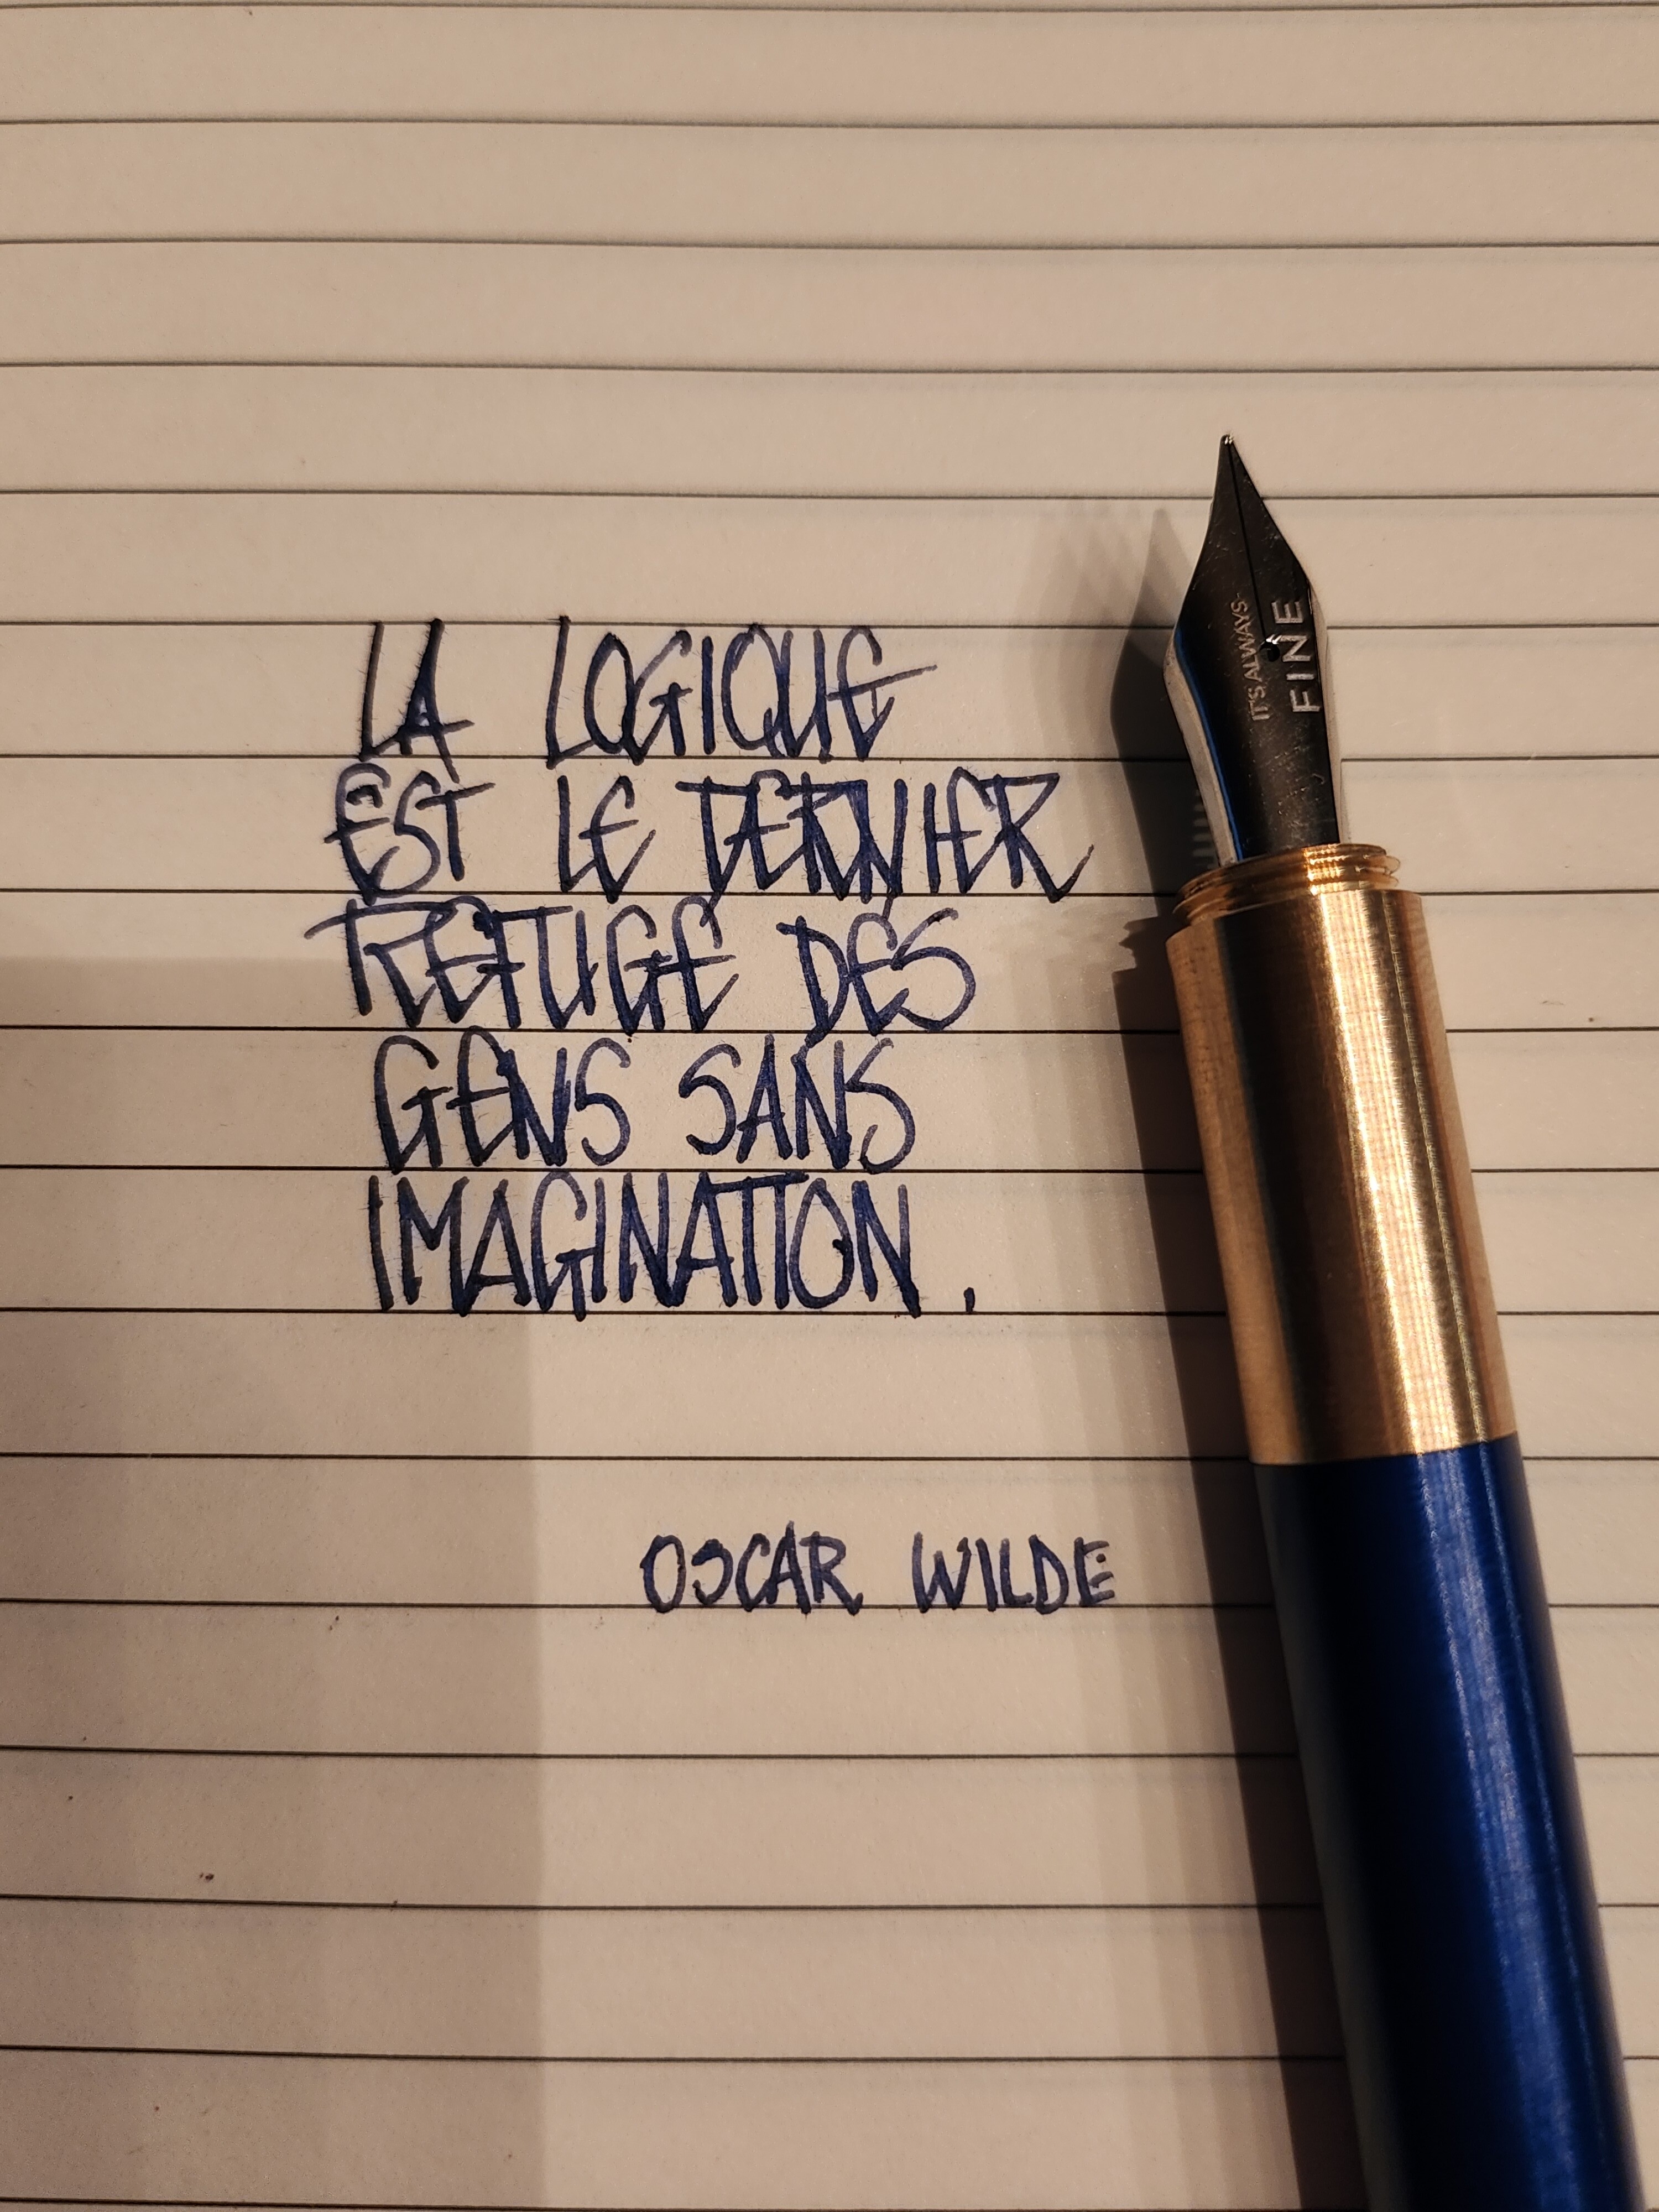 LA LOGIQUE
EST LE DERNIER
REFUGE DES
GENS SANS
IMAGINATION.
OSCAR WILDE
IT'S ALWAYS-
FINE